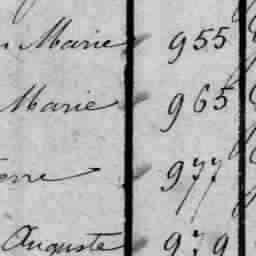 Marie 955
Marie 965
erre 977
Auguste 979